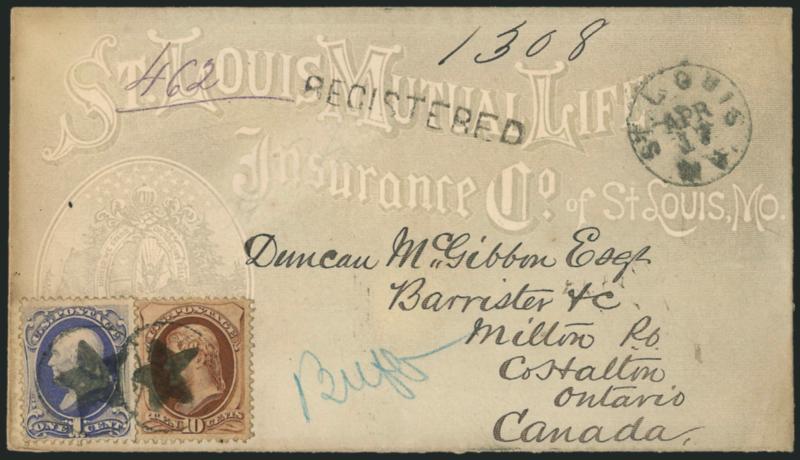 1308
462
REGISTERED
ST. LOUIS MUTUAL LIFE
Insurance Co. of St Louis, Mo.
ST. LOUIS
APR
17
Duncan McGibbon Esqr
Barrister &c
Milton P.o.
Co Halton
Ontario
Canada,
Buffo
U.S. POSTAGE
ONE 1 CENT
U.S. POSTAGE
10 CENTS